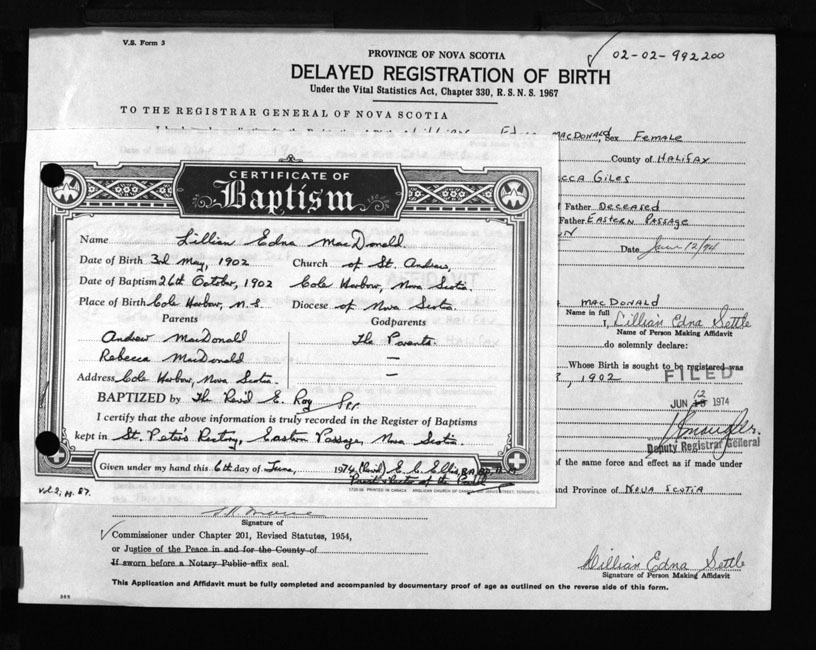 V.S. Form 3
02-02-992200
PROVINCE OF NOVA SCOTIA
DELAYED REGISTRATION OF BIRTH
Under the Vital Statistics Act, Chapter 330, R.S.N.S. 1967
TO THE REGISTRAR GENERAL OF NOVA SCOTIA
MACDONALD, Sex FEMALE
County of HALIFAX
CCA GILES
Father DECEASED
Father EASTERN PASSAGE
Date June 12/74
CERTIFICATE OF
Baptism
Name Lillian Edna MacDonald
Date of Birth 3rd May, 1902 Church of St. Andrew,
Date of Baptism 26th October, 1902 Cole Harbour, Nova Scotia.
Place of Birth Cole Harbour, N.S. Diocese of Nova Scotia.
Parents Godparents
Andrew MacDonald The Parents.
Rebecca MacDonald —
Address Cole Harbour, Nova Scotia. —
BAPTIZED by The Rev'd E. Roy
I certify that the above information is truly recorded in the Register of Baptisms
kept in St. Peter's Rectory, Eastern Passage, Nova Scotia.
Given under my hand this 6th day of June, 1974 (Rev'd) E. C. Ellis,
Vol 2, p. 87.
PRINTED IN CANADA
MACDONALD
Name in full
I, Lillian Edna Settle
Name of Person Making Affidavit
do solemnly declare:
Whose Birth is sought to be registered was
, 1902
FILED
JUN 12 1974
Deputy Registrar General
of the same force and effect as if made under
and Province of NOVA SCOTIA
Signature of
Commissioner under Chapter 201, Revised Statutes, 1954,
or Justice of the Peace in and for the County of
If sworn before a Notary Public affix seal.
Lillian Edna Settle
Signature of Person Making Affidavit
This Application and Affidavit must be fully completed and accompanied by documentary proof of age as outlined on the reverse side of this form.